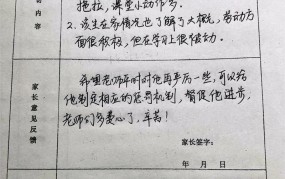 拖拉，课堂小动作多。
内容
2.该生在家情况也了解了大概，劳动方
面很积极，但在学习上很被动。
家长意见反馈
希望老师平时对他再严厉一些，可以给
他制定相应的惩罚机制，督促他进步，
老师们多费心了，辛苦！
家长签字：
年 月 日